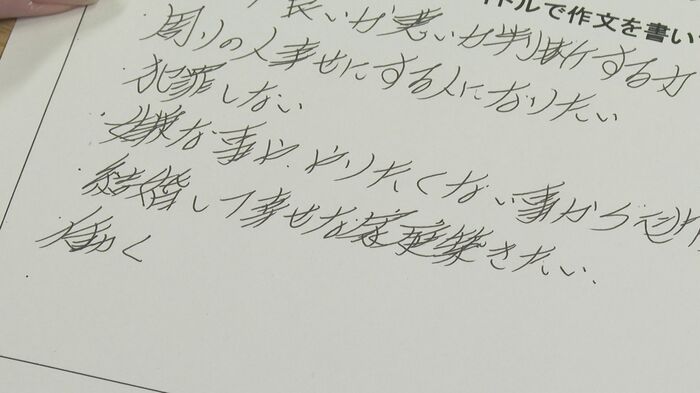 トルで作文を書い
良いか悪いか判断する力
周りの人幸せにする人になりたい
犯罪しない
嫌な事や、やりたくない事から逃
結婚して幸せな家庭築きたい.
働く